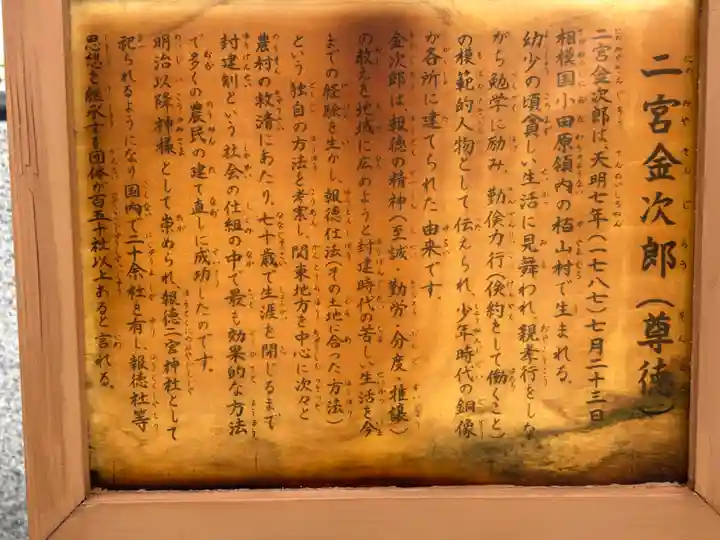 二宮金次郎(尊徳)
二宮金次郎は、天明七年(一七八七)七月二十三日
相模国小田原領内の栢山村で生まれる。
幼少の頃貧しい生活に見舞われ、親孝行をしな
がら勉学に励み、勤倹力行(倹約をして働くこと)
の模範的人物として伝えられ、少年時代の銅像
が各所に建てられた由来です。
金次郎は、報徳の精神(至誠・勤労・分度・推譲)
の教えを地域に広めようと封建時代の苦しい生活を今
までの経験を生かし、報徳仕法(その土地に合った方法)
という独自の方法を考案し、関東地方を中心に次々と
農村の救済にあたり、七十歳で生涯を閉じるまで
封建制という社会の仕組の中で最も効果的な方法
で多くの農民の建て直しに成功したのです。
明治以降神様として崇められ、報徳二宮神社として
祀られるようになり国内で二十余社を有し、報徳社等
思想を継承する団体が百五十社以上あると言れる。